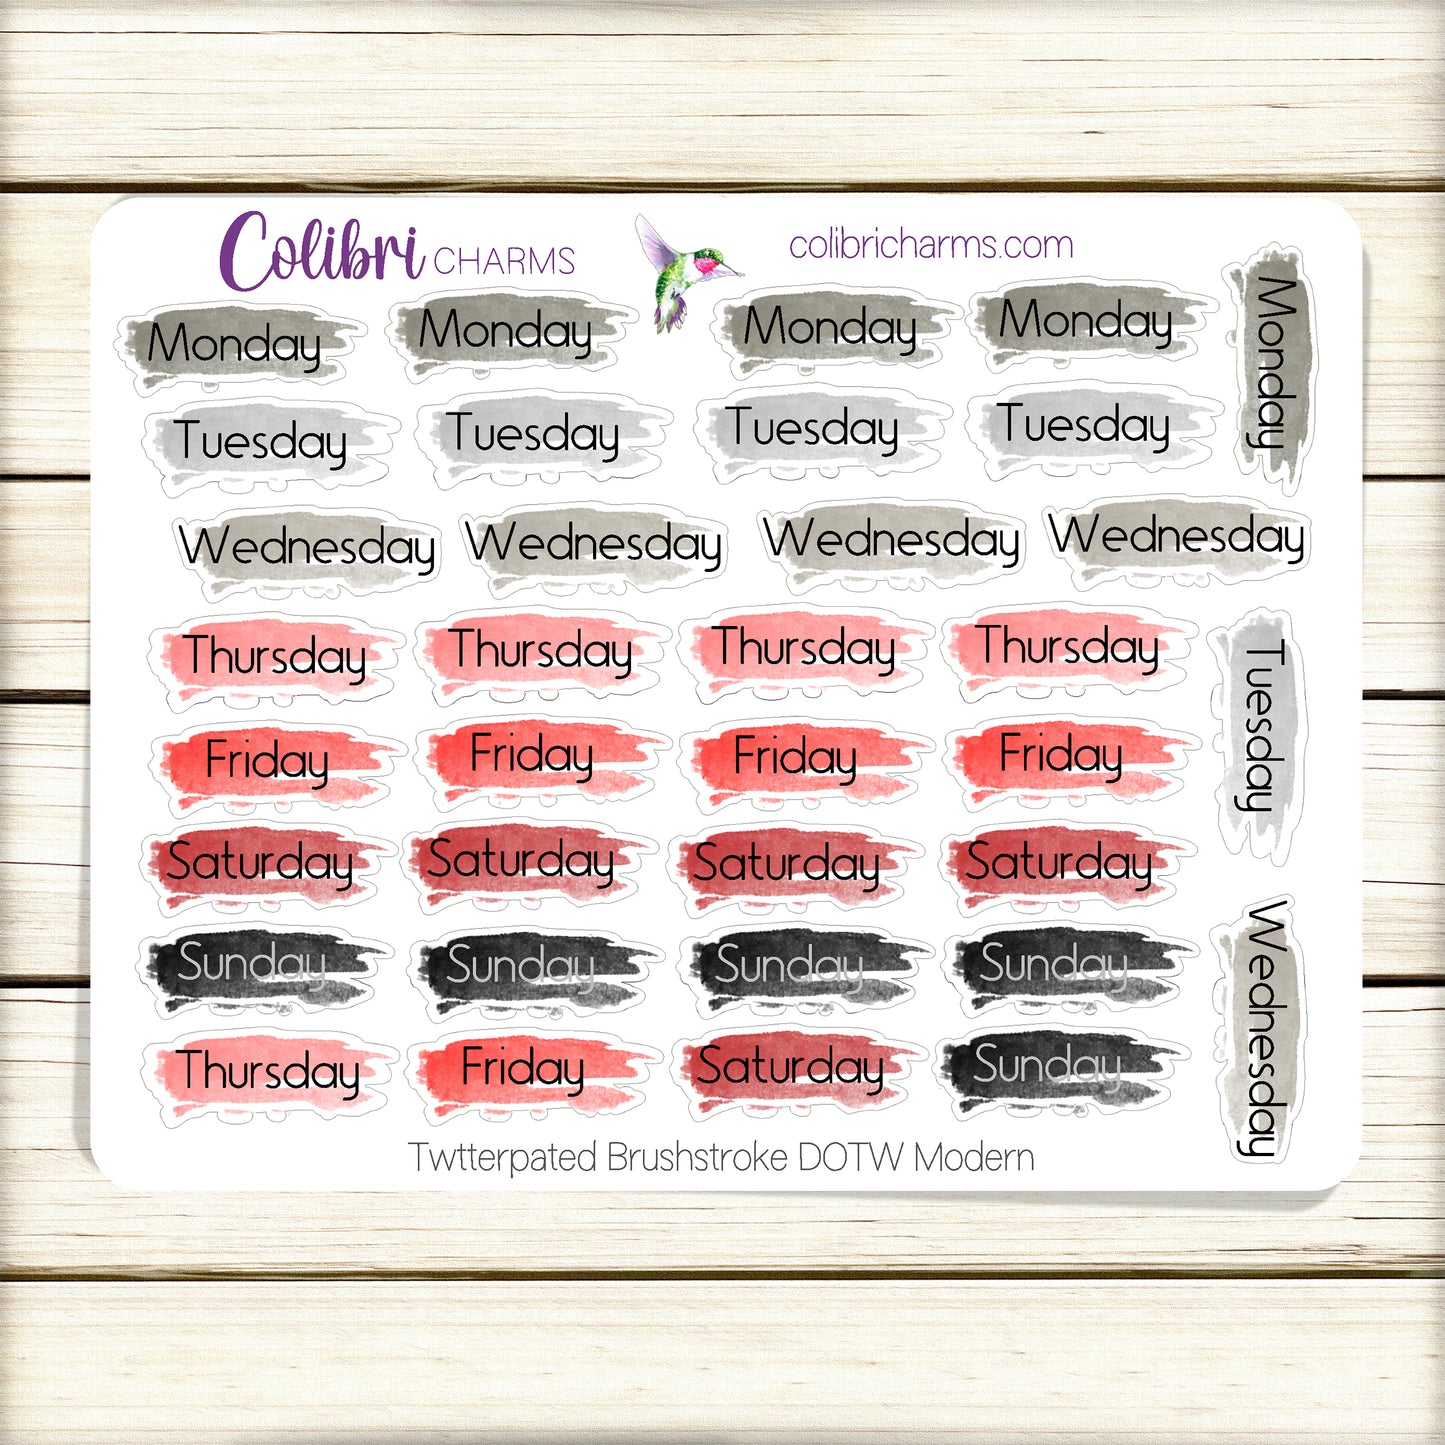 Colibri CHARMS
colibricharms.com
Monday Monday Monday Monday
Monday
Tuesday Tuesday Tuesday Tuesday
Wednesday Wednesday Wednesday Wednesday
Thursday Thursday Thursday Thursday
Tuesday
Friday Friday Friday Friday
Saturday Saturday Saturday Saturday
Sunday Sunday Sunday Sunday
Wednesday
Thursday Friday Saturday Sunday
Twtterpated Brushstroke DOTW Modern